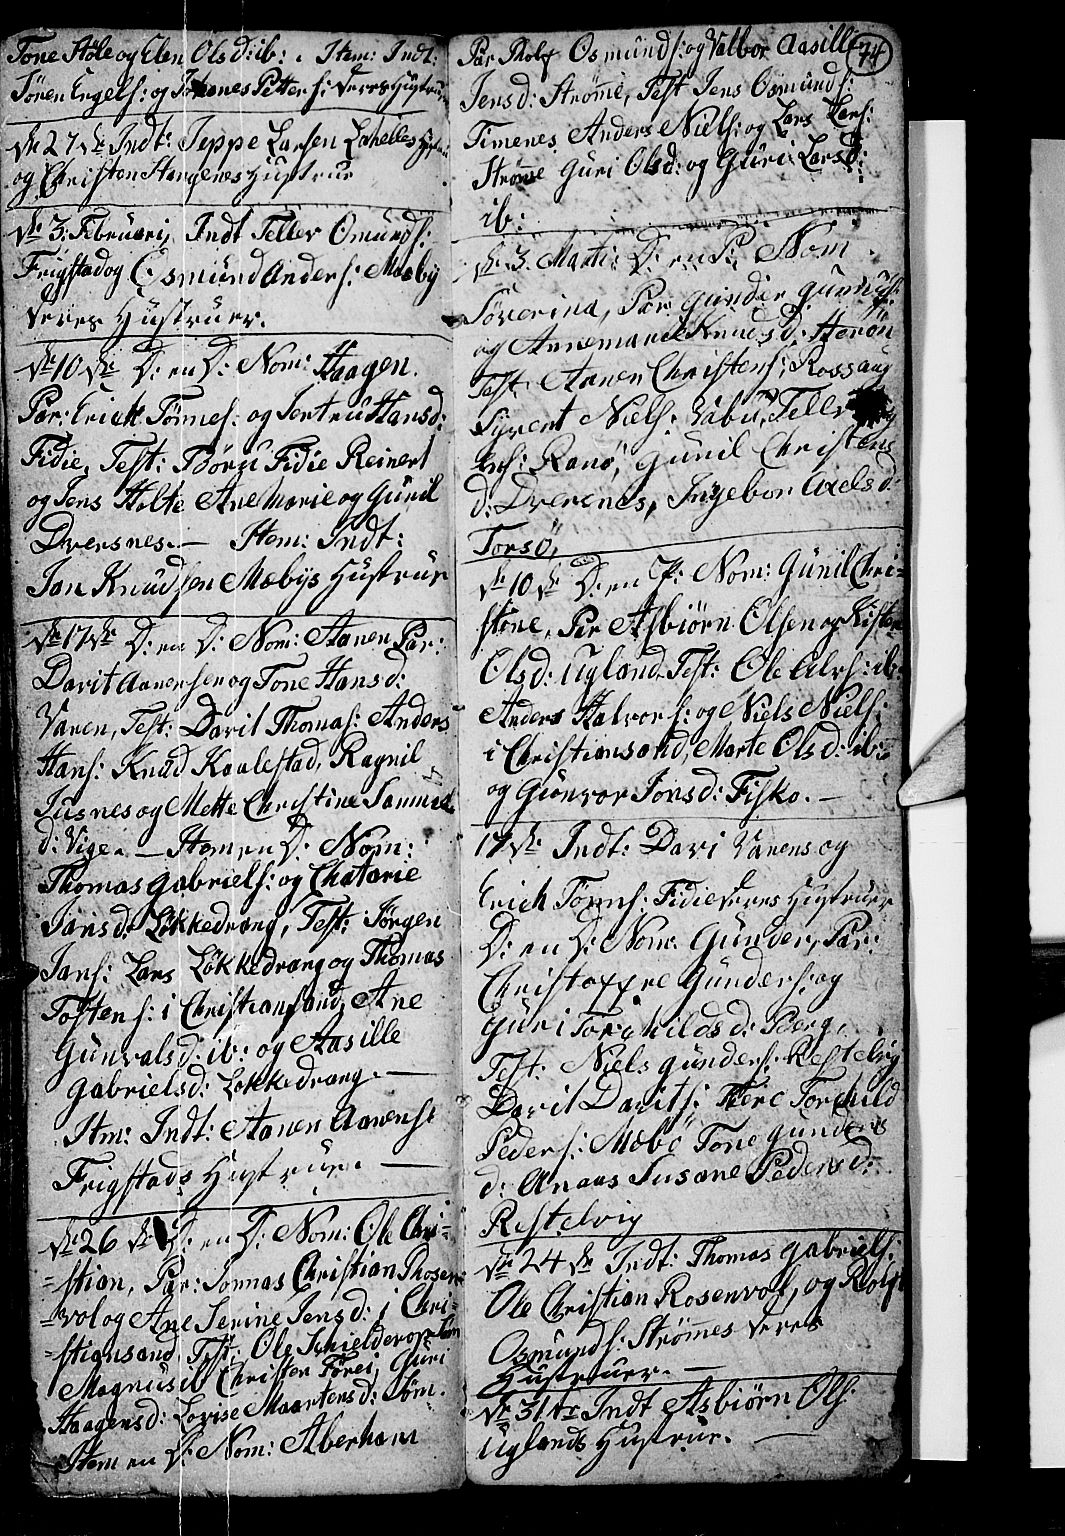 Tone Støle og Elen Olsd: ib: . Item: Indt:
Tören Engels: og Johanes Petters: deres Hustruer
dn 27 de Indt: Jeppe Larsen Lahelles Hustrue
og Christen Stangenes Hustrue
dn 3: Februari, Indt Teller Omunds:
Frigstad og Osmund Anders: Mæby
deres Hustruer.
dn 10 de D: en D: Nom: Haagen.
Par: Erick Tönnes: og Jertru Hansd:
Fidie, Test: Börgi Fidie Reinert
og Jens Holte Ane Marie og Gunil
Dversnes. — Item: Indt:
Jan Knudsen Mæbys Hustrue
dn 17 de D: en D: Nom: Aanen Par:
Davit Aanensen og Tone Hansd:
Varen, Test: David Thomas: Anders
Hans: Knud Kaalestad, Ragnil
Tusnes og Mette Christine Samuels
d: Vige. — Item en D: Nom:
Thomas Gabriels: og Chatarie
Jansd: Løkkedrang, Test: Jörgen
Jans: Lars Løkkedrang og Thomas
Tostens: i Christiansand, Ane
Gunvalsd: ib: og Aasille
Gabrielsd: Løkkedrang. —
Itm: Indt: Aanen Aanens:
Frigstads Hustrue. —
dn 26 de D: en D: Nom: Ole Chri=
=stian, Par: Jonnas Christian Rosen=
=vol og Ane Serine Jensd: i Chri=
=stiansand, Test: Ole Schielderop
Magnus ib Christen Törei, Guri
Haagensd: Lovise Maartensd: Töm.
Item en D: Nom: Aberham
74
Par Rolf Osmunds: og Valbor Aasille
Jensd: Strømme, Test Jens Osmunds:
Timenes Anders Niels: og Lars Lars:
Strømme Guri Olsd: og Guri Larsd:
ib:
dn 3. Marti: D: en P: Nom
Söverina, Par Gunder Gunnufs:
og Annemarie Knudsd: Herön
Test: Aanen Christens: Rossaug
Syvert Niels: Vabu, Tellev
Ens: Ranö, Gunil Christens
d: Dversnes, Ingebor Axelsd:
Torsö,
dn 10 de D: en P: Nom: Gunil Chri=
stone, Par Asbiörn Olsen og Kisten
Olsd: Ugland, Test: Ole Alvs: ib:
Anders Halvors: og Niels Niels:
i Christiansand, Marte Olsd: ib:
og Gunvor Jonsd: Fisko. —
17 de: Indt: Davi Varens og
Erich Tönnes: Fidie deres Hustruer
D: en D: Nom: Gunder, Par:
Christoffre Gunders: og
Guri Torchildsd: Berg,
Test: Niels Gunders: Restelvig
David Davits: Terc Torchild
Peders: Mæbö Tone Gunders
d: Anaas Susane Pedersd:
Restelvig
dn 24 de Indt: Thomas Gabriels:
Ole Christian Rosenvol, og Rolf
Osmunds: Strömes deres
Hustruer. —
dn 31 te Indt Asbiörn Ols:
Uglands Hustrue. —